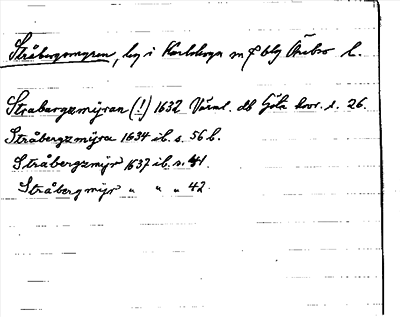 Stråbergsmyren, by i Karlskoga sn o blg Örebro l.
Strabargzmÿran (!) 1632 Värml. db Göta hovr. s. 26.
Stråbergzmÿra 1634 ib. s. 56 b.
Stråbergzmÿr 1637 ib. s. 41
Stråbergmÿr " " " 42.